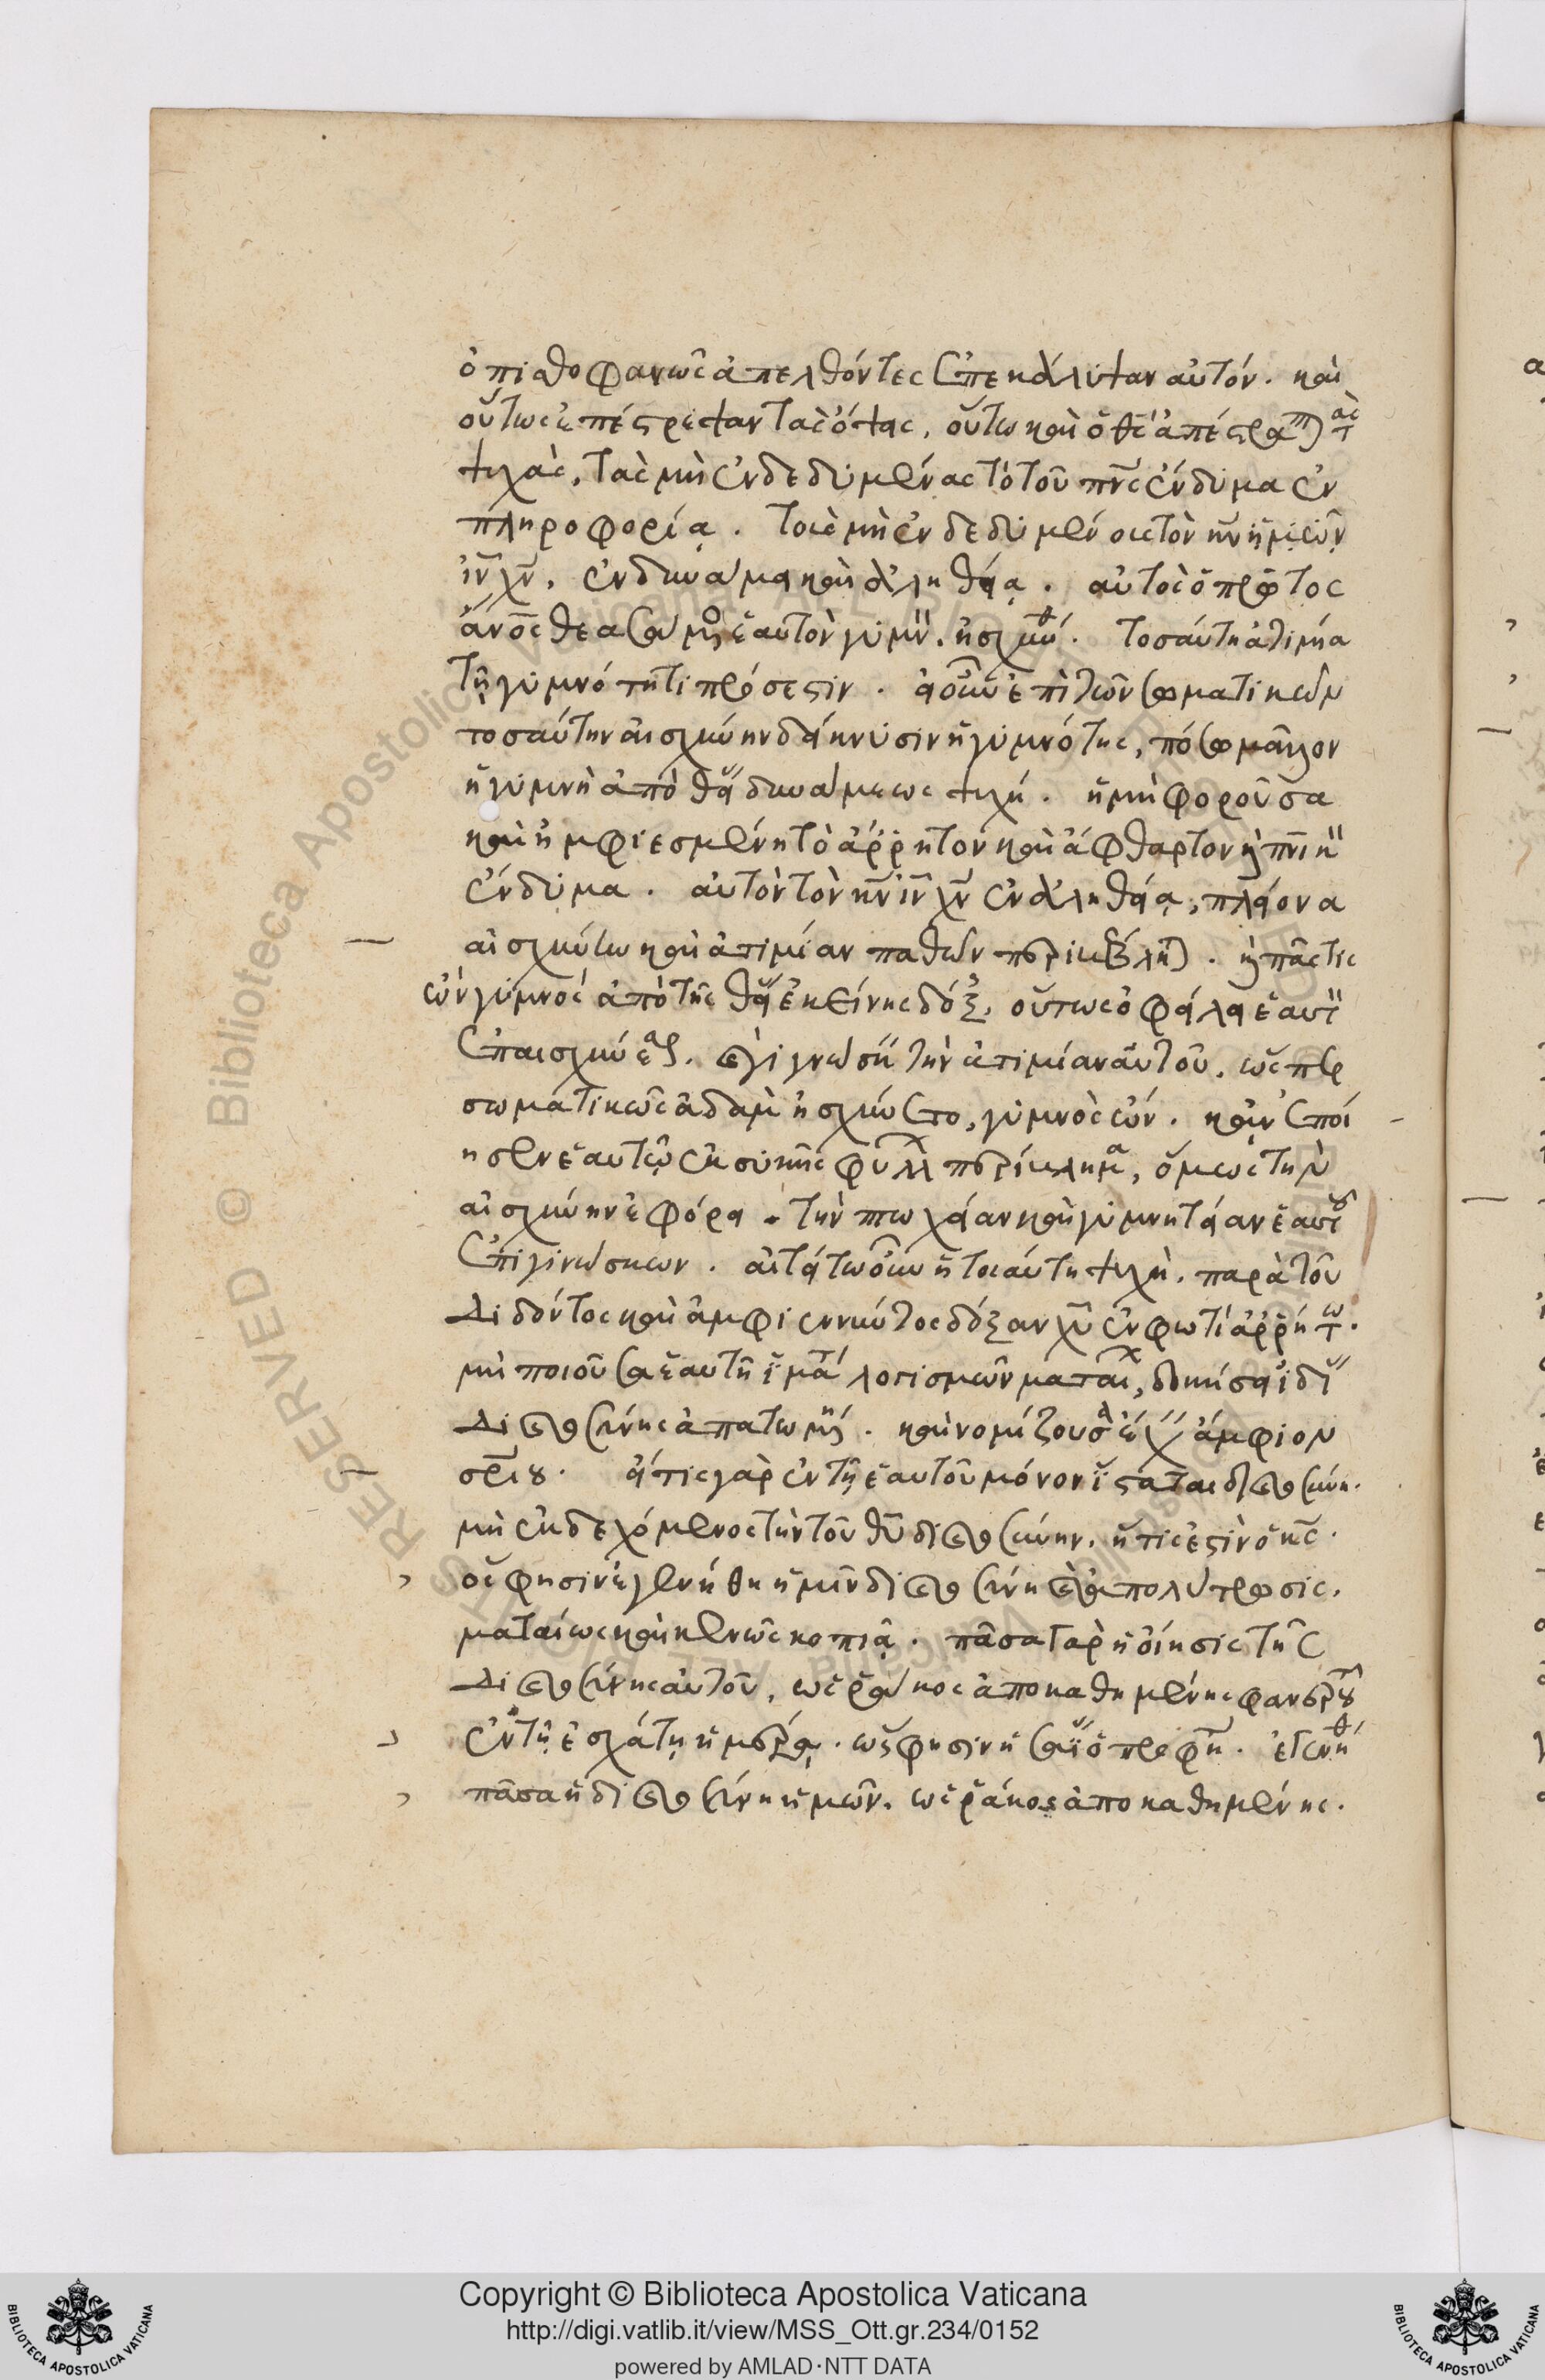 ὀπισθοφανῶς ἀπελθόντες ἐπεκάλυψαν αὐτόν. καὶ
οὕτως ἐπέστρεψαν τὰς ὄψας, οὕτω καὶ ὁ θς ἀπέστραπται τὰς
ψυχὰς, τὰς μὴ ἐνδεδυμένας τὸ τοῦ πνς ἔνδυμα ἐν
πληροφορίᾳ. τοῖς μὴ ἐνδεδυμένοις τὸν κν ἡμῶν
ἰν χν, ἐν δυνάμει καὶ ἀληθείᾳ. αὐτὸς ὁ πρῶτος
ἄνος θεασάμενος ἑαυτὸν γυμνὸν, ἠσχύνθη. τοσαύτη ἀτιμία
τῇ γυμνότητι πρόσεστιν. εἰ οὖν ἐπὶ τῶν σωματικῶν
τοσαύτην αἰσχύνην δείκνυσιν ἡ γυμνότης, πόσῳ μᾶλλον
ἡ γυμνὴ ἀπὸ θείας δυνάμεως ψυχή. ἡ μὴ φοροῦσα
καὶ ἠμφιεσμένη τὸ ἄρρητον καὶ ἄφθαρτον καὶ πνικὸν
ἔνδυμα. αὐτὸν τὸν κν ἰν χν ἐν ἀληθείᾳ, πλείονα
αἰσχύνην καὶ ἀτιμίαν παθῶν περικέκληται. καὶ πᾶς τις
ὢν γυμνὸς ἀπὸ τῆς θείας ἐκείνης δόξης, οὕτως ὀφείλει ἑαυτὸν
ἐπαισχύνεσθαι. ἐπιγνῶναι τὴν ἀτιμίαν αὐτοῦ, ὥσπερ
σωματικῶς ἀδὰμ ἠσχύνετο, γυμνὸς ὤν. κἂν ἐποί
ησεν ἑαυτῷ ἐκ συκῆς φύλλων περίκλημα, ὅμως τὴν
αἰσχύνην ἐφόρει. τὴν πτωχείαν καὶ γυμνητείαν ἑαυτοῦ
ἐπιγινώσκων. αἰτείτω οὖν ἡ τοιαύτη ψυχὴ, παρὰ τοῦ
διδόντος καὶ ἀμφιεννύντος δόξαν χυ ἐν φωτὶ ἀρρήτω.
μὴ ποιοῦσα ἑαυτῇ ἱμάτιον λογισμῶν ματαίων, δοκήσει ἰδίας
δικαιοσύνης ἀπατωμένη. καὶ νομίζουσα ἔχειν ἀμφίον
σριου. εἴ τις γὰρ ἐν τῇ ἑαυτοῦ μόνον ἵσταται δικαιοσύνη.
μὴ ἐκδεχόμενος τὴν τοῦ θυ δικαιοσύνην, ἥτις ἐστὶν ὁ κς.
ὃς φησιν ἐγενήθη ἡμῖν δικαιοσύνη καὶ ἀπολύτρωσις,
ματαίως καὶ κενῶς κοπιᾷ. πᾶσα γὰρ ἡ οἴησις τῆς
δικαιοσύνης αὐτοῦ, ὡς ῥάκος ἀποκαθημένης φανεροῦται
ἐν τῇ ἐσχάτῃ ἡμέρᾳ. ὥς φησιν ἡσαΐας ὁ προφήτης. ἐγενήθη
πᾶσα ἡ δικαιοσύνη ἡμῶν, ὡς ῥάκος ἀποκαθημένης.
Copyright © Biblioteca Apostolica Vaticana
http://digi.vatlib.it/view/MSS_Ott.gr.234/0152
powered by AMLAD·NTT DATA